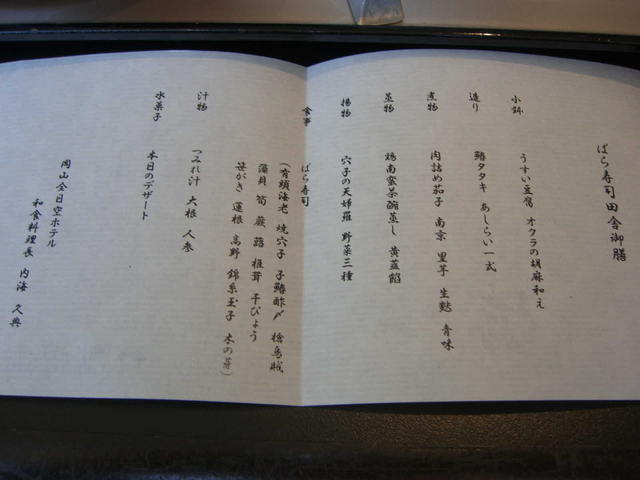 ばら寿司田舎御膳
小鉢 うすい豆腐 オクラの胡麻和え
造り 鰆タタキ あしらい一式
煮物 肉詰め茄子 南京 里芋 生麩 青味
蒸物 南蛮茶碗蒸し 黄韮餡
揚物 穴子の天婦羅 野菜三種
食事 ばら寿司
(有頭海老 焼穴子 子鰆酢〆 烏賊
藻貝 筍 蕨 蕗 椎茸 干ぴょう
笹がき 蓮根 高野 錦糸玉子 木の芽)
汁物 つみれ汁 大根 人参
水菓子 本日のデザート
岡山全日空ホテル
和食料理長 内海 久典